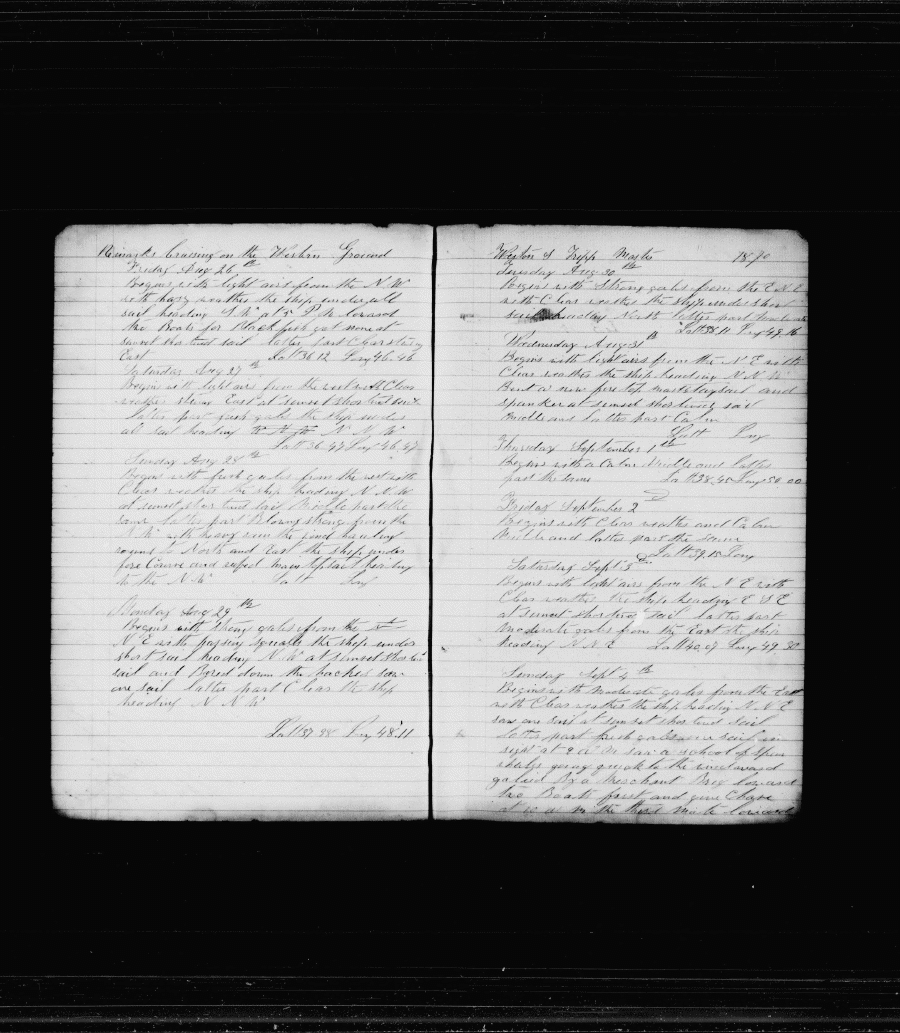 Remarks Cruising on the Western Ground
Friday Aug 26th
Begins with light airs from the N.W
with hazy weather the ship under all
sail heading S.W at 5 P.M lowered
the Boats for Blackfish got none at
sunset shortend sail latter part Clear stering
East Latt 36 12 Long 46.46
Saturday Aug 27th
Begins with light airs from the west with Clear
weather stering East at sunset shortend sail
latter part fresh gales the ship under
all sail heading N N W
Latt 36.47 Long 46.47
Sunday Aug 28th
Begins with fresh gales from the west with
Clear weather the ship heading N N.W
at sunset shortend sail Middle part the
same latter part Blowing strong from the
N.W with heavy rain the wind hauling
round to North and East the ship under
fore Course and reefed main topsail heading
to the N.W Latt Long
Monday Aug 29th
Begins with strong gales from the
N.E with passing squalls the ship under
short sail heading N.W at sunset shortend
sail and Bored down the hached saw
one sail latter part Clear the ship
heading N N W
Latt 37.28 Long 48.11
Weston S Tripp Master 1890
Tuesday Aug 30th
Begins with Strong gales from the E N E
with Clear weather the ship under short
sail heading North latter part moderate
Latt 38.11 Long 49.16
Wednesday Aug 31th
Begins with light airs from the N.E with
Clear weather the ship heading N.N.W
Bent a new fore top mast staysail and
spanker at sunset shortened sail
Middle and latter part Calm
Latt Long
Thursday September 1th
Begins with a Calm Middle and latter
part the same Latt 38.45 Long 50.00
Friday September 2
Begins with Clear weather and Calm
Middle and latter part the same
Latt 39.15 Long
Saturday Sept 3
Begins with light airs from the N E with
Clear weather the ship heading E S E
at sunset shortend sail latter part
moderate gales from the East the ship
heading N.N.E Latt 40.09 Long 49.30
Sunday Sept 4th
Begins with moderate gales from the East
with Clear weather the ship heading N N E
saw one sail at sunset shortend sail
latter part fresh gales one sail in
sight at 9 A M saw a school of sperm
whales going quick to the windward
galied By a Merchant Brig lowered
two Boats first and give Chase
at 10 A M the third Mate lowered